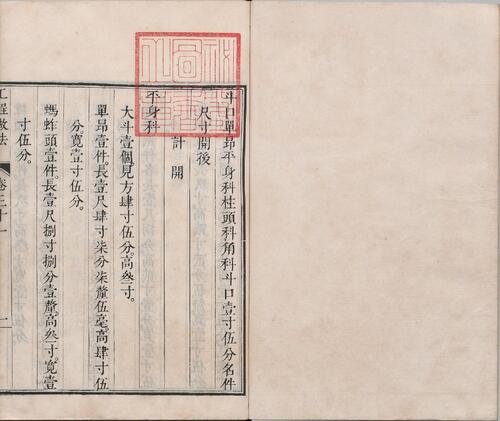 斗口單昂平身科柱頭科角科斗口壹寸伍分名件
尺寸開後
計開
平身科
大斗壹個見方肆寸伍分。高叁寸。
單昂壹件。長壹尺肆寸柒分柒釐伍毫。高肆寸伍
分寬壹寸伍分。
螞蚱頭壹件。長壹尺捌寸捌分壹釐。高叁寸。寬壹
寸伍分。
工程做法
卷三十一
一